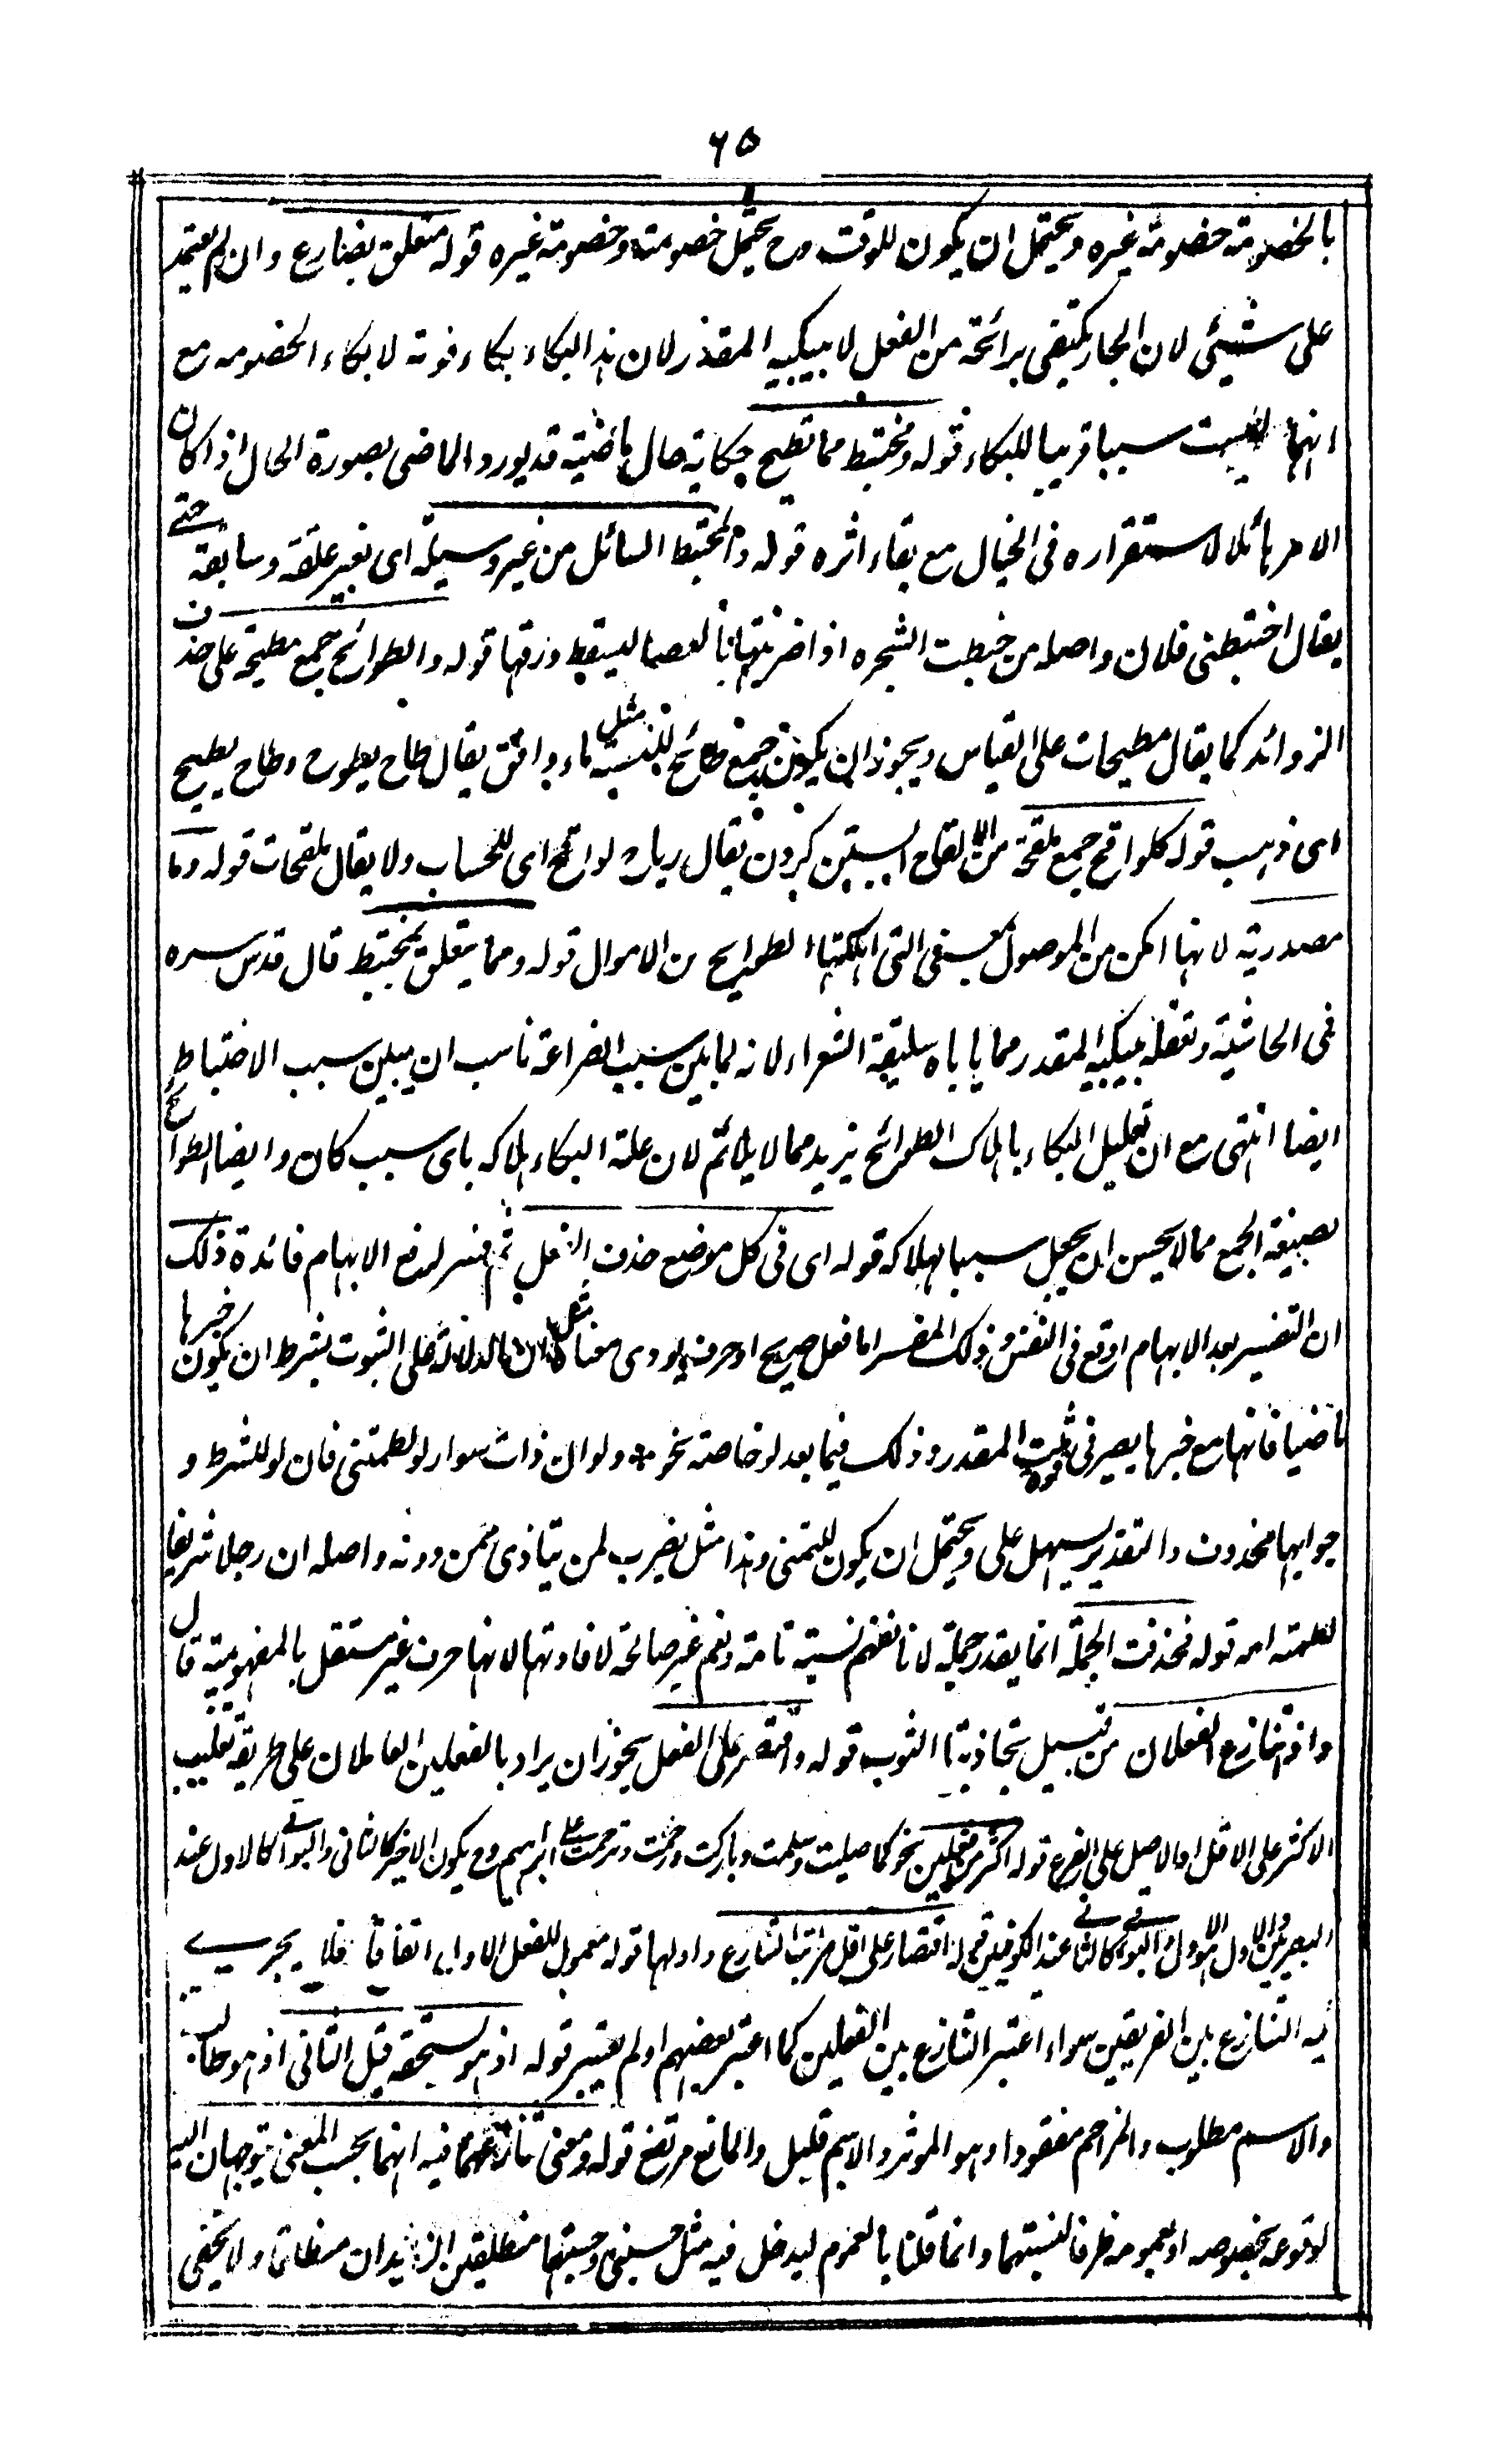 ٦٥
بالخصومة خصومة غيره ويحتمل ان يكون للوقت وح يحتمل خصومته وخصومة غيره قوله متعلق بضارع وان لم يعتمد
على شيئ لان الجار يكتفى برائحة من الفعل لا بيبكيه المقدر لان هذا البكاء بكاء فوته لا بكاء الخصومه مع
انها ليست سببا قريبا للبكاء قوله ومختبط مما تطيح حكاية حال ماضية قد يورد الماضى بصورة الحال اذا كان
الامر هائلا لاستقراره فى الخيال مع بقاء اثره قوله والمختبط السائل من غير وسيلة اى بغير علقة وسابقة حتى
يقال اختبطنى فلان واصله من خبطت الشجره اذا ضربتها بالعصا ليسقط ورقها قوله والطوائح جمع مطيحة على حذف
الزوائد كما يقال مطيحات على القياس ويجوز ان يكون جمع طائح للنسبه مثل ماء دافق يقال طاح يطوح وطاح يطيح
اى ذهب قوله كلواقح جمع ملقحة من الالقاح ابستن كردن يقال رياح لواقح اى للسحاب ولا يقال ملقحات قوله وما
مصدرية لانها امكن من الموصول بمعنى التى اهلكتها الطوايح من الاموال قوله ومما يتعلق بمختبط قال قدس سره
فى الحاشية وتعلقه بيبكيه المقدر مما ياباه سليقة الشعراء لانه لما بين سبب الضراعة ناسب ان يبين سبب الاختباط
ايضا انتهى مع ان تعليل البكاء باهلاك الطوائح يزيد مما لا يلائم لان علة البكاء هلاكه باى سبب كان وايضا الطوائح
بصيغة الجمع مما لا يحسن ان يجعل سببا لهلاكه قوله اى فى كل موضع حذف الفعل ثم فسر لرفع الابهام فائدة ذلك
ان التفسير بعد الابهام اوقع فى النفس وذلك المفسر اما فعل صريح او حرف يودى معناه مثل ان الدالة على الثبوت بشرط ان يكون خبرها
ماضيا فانها مع خبرها يصير فى قوة ثبت المقدر وذلك فيما بعد لو خاصة نحو ولو ان ذات سوار لطمتنى فان لو للشرط و
جوابها محذوف والتقدير لسهل على ويحتمل ان يكون للتمنى وهذا مثل يضرب لمن يتاذى ممن دونه واصله ان رجلا شريفا
لطمته امه قوله فحذفت الجملة انما يقدر جملة لانا نفهم نسبة تامة ونعم غير صالحة لافادتها لانها حرف غير مستقل بالمفهومية قال
واذا تنازع الفعلان من قبيل تجاذبنا الثوب قوله واقتصر على الفعل يجوز ان يراد بالفعلين العاملان على طريقة تغليب
الاكثر على الاقل او الاصل على الفرع قوله اكثر من فعلين نحو كما صليت وسلمت وباركت ورحمت وترحمت على ابراهيم وح يكون الاخير كالثانى والبواقى كالاول عند
البصريين والاول الاول والبواقى كالثانى عند الكوفيين قوله اقتصار على اقل مراتب التنازع واولها قوله معمول للفعل الاول اتفاقا فلا يجرى
فيه التنازع بين الفريقين سواء اعتبر التنازع بين الفعلين كما اعتبر بعضهم او لم يعتبر قوله اذ هو يستحقه قبل الثانى اذ هو طالب
والاسم مطلوب والمزاحم مفقود اوهو الموثر والاسم قابل والمانع مرتفع قوله ومعنى تنازعهما فيه انهما بحسب المعنى يتوجهان اليه
لوقوعه بخصوصه او بعمومه طرفا لنسبتهما وانما قلنا بالعموم ليدخل فيه مثل حسبنى وحسبتهما منطلقين الزيدان منطلقا ولا يخفى